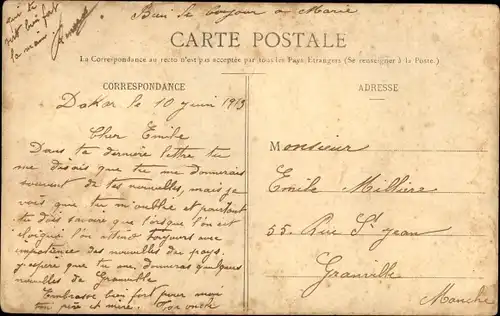 Bien le bonjour a Marie
qui te
sert bien fort
la main
CARTE POSTALE
La Correspondance au recto n'est pas acceptée par tous les Pays Etrangers (Se renseigner à la Poste.)
CORRESPONDANCE
Dakar le 10 juin 1913
Cher Emile
Dans ta dernière lettre tu
me disais que tu me donnerais
souvent de tes nouvelles, mais je
vois que tu m'oublie et pourtant
tu dois savoir que lorsque l'on est
eloigné l'on attend toujours avec
impatience des nouvelles du pays.
j'espère que tu me donneras quelques
nouvelles de Granville
Embrasse bien fort pour moi
ton père et mère. Ton oncle
ADRESSE
Monsieur
Emile Millière
55 Rue St Jean
Granville
Manche